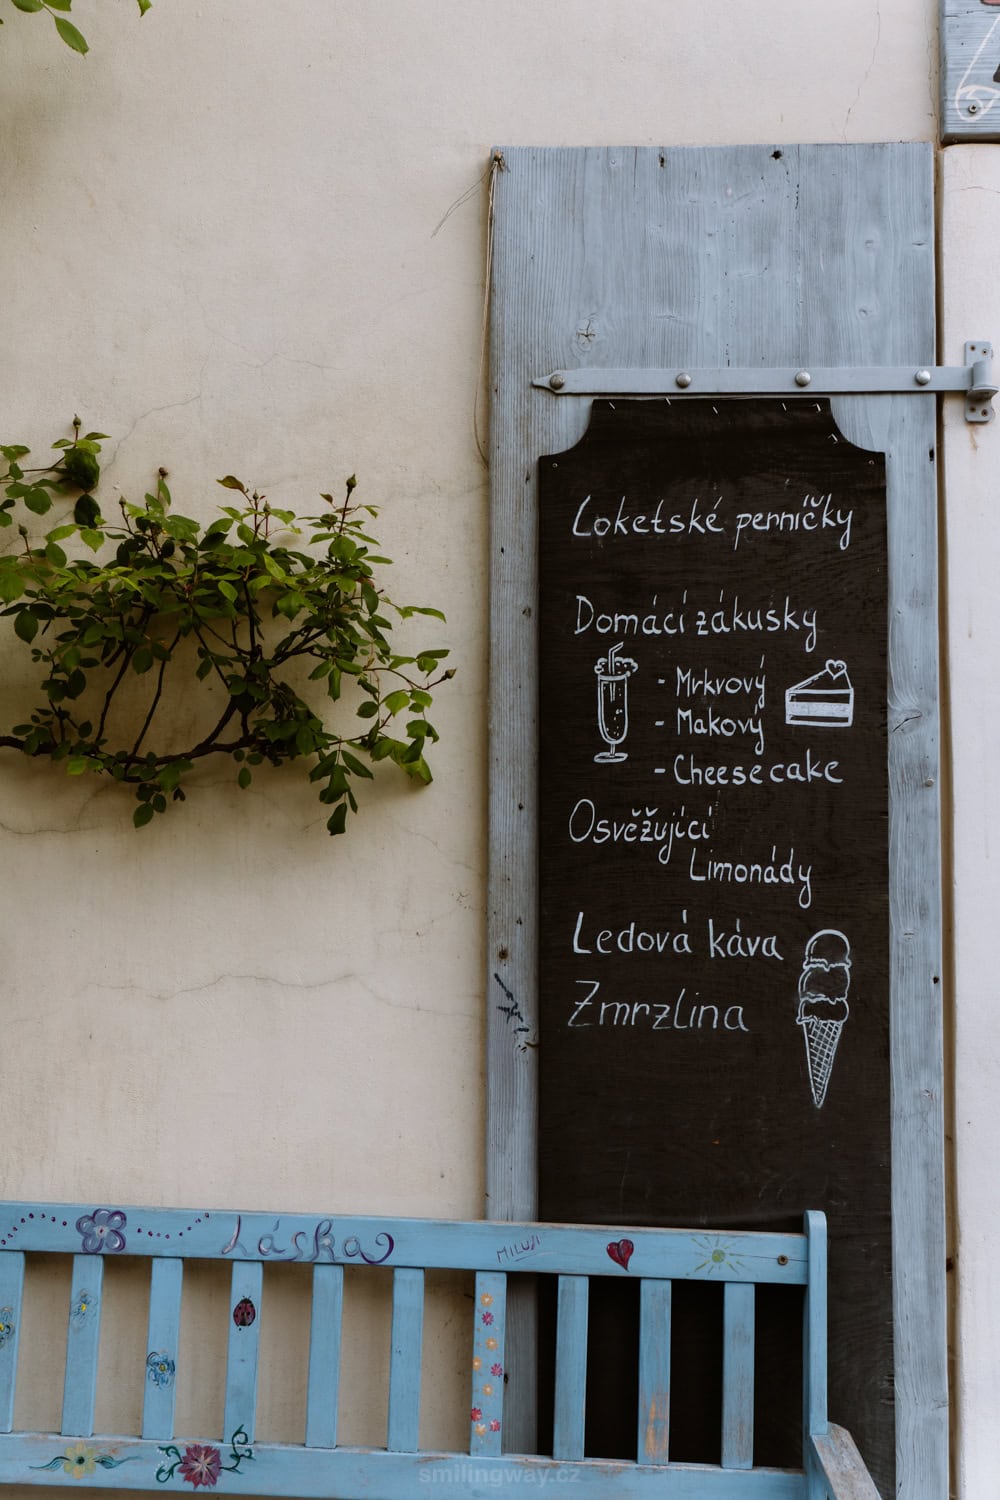 Loketské perníčky
Domácí zákusky
- Mrkvový
- Makový
- Cheesecake
Osvěžující
Limonády
Ledová káva
Zmrzlina
Láska
MILUJI
smilingway.cz